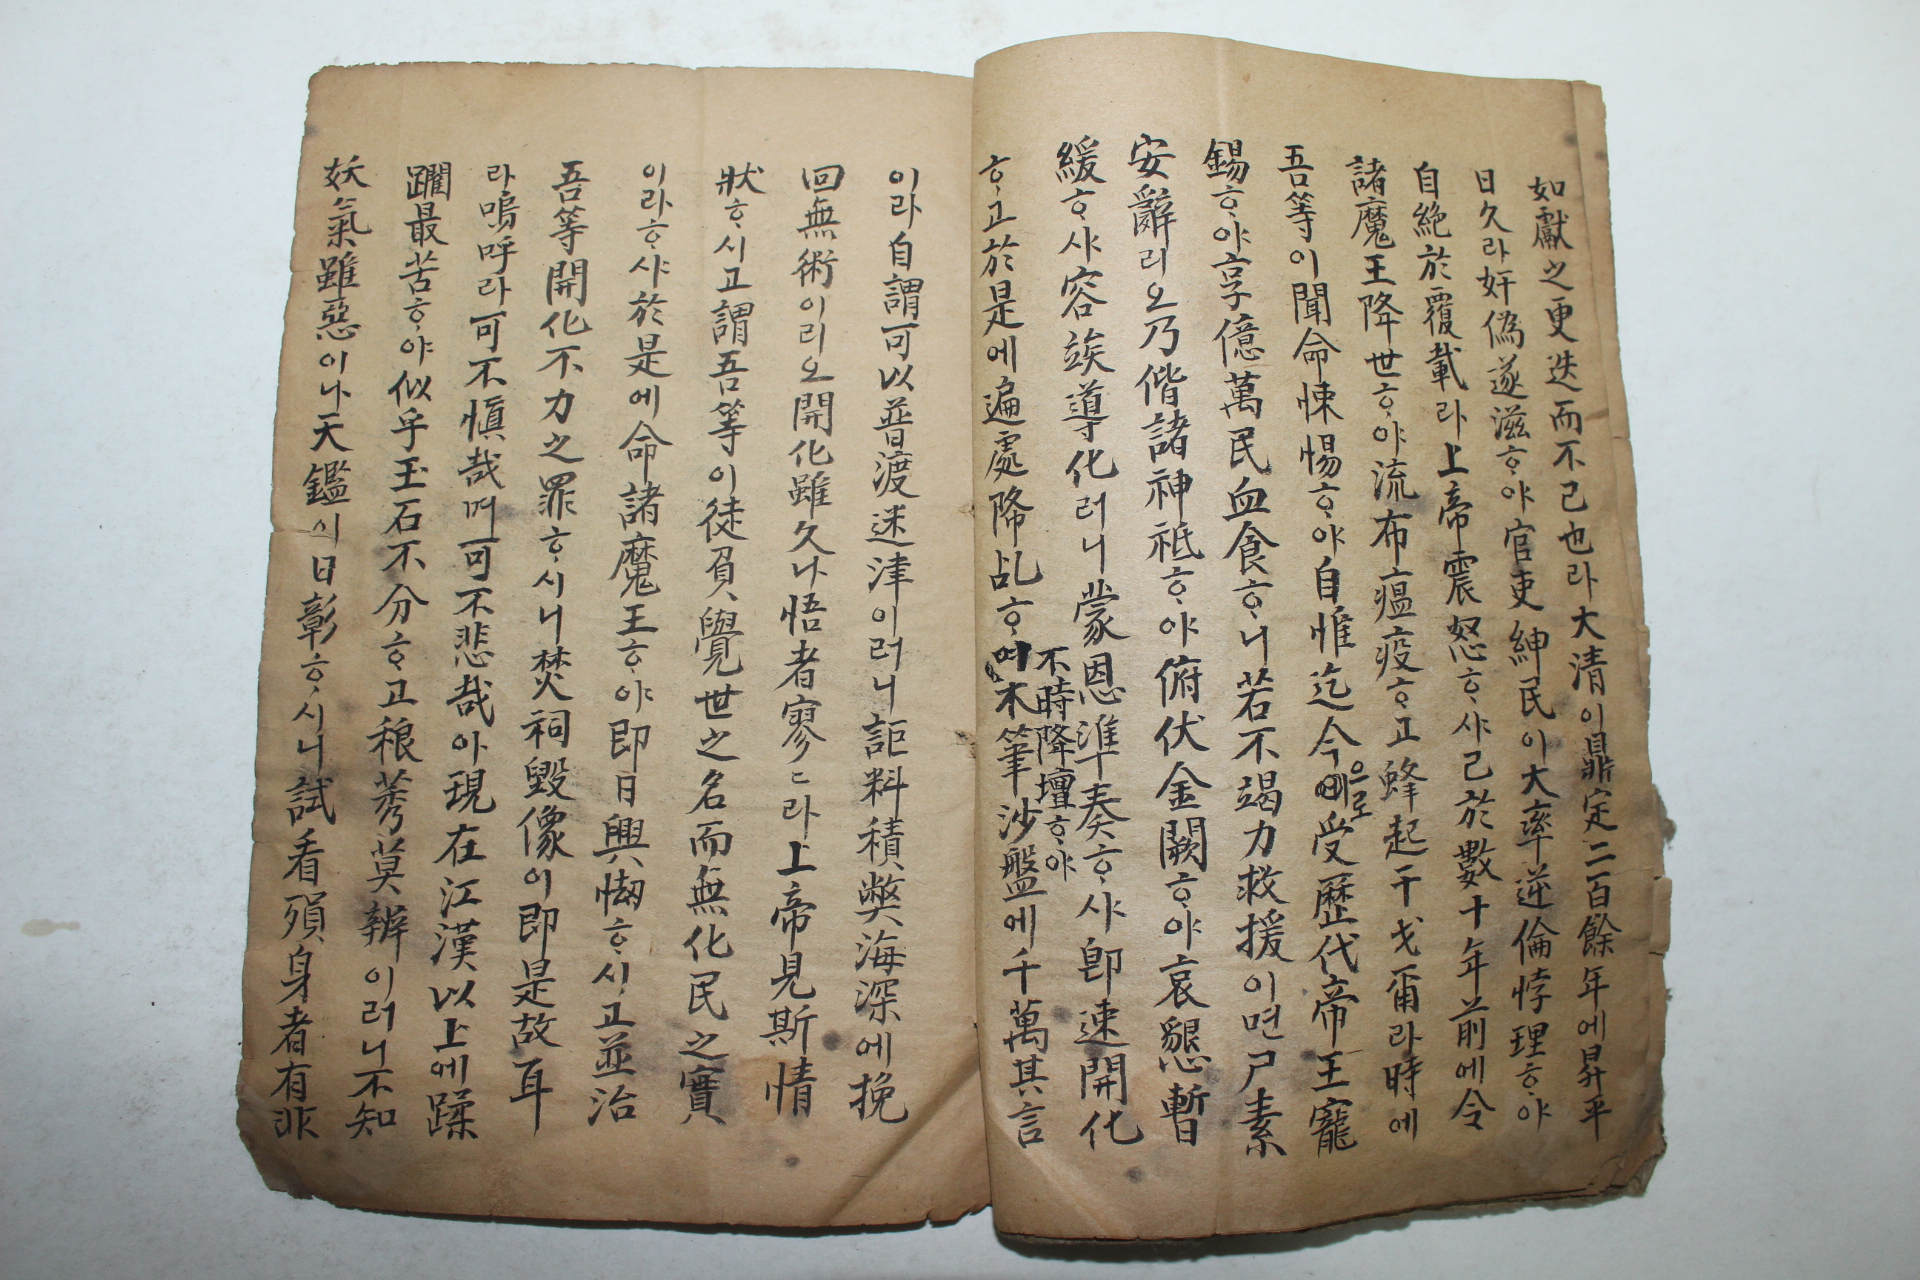 如獻之更迭而不已也라大清이鼎定二百餘年에昇平
日久라奸偽遂滋ᄒᆞ야官吏紳民이大率逆倫悖理ᄒᆞ야
自絶於覆載라上帝震怒ᄒᆞ샤己於數十年前에令
諸魔王降世ᄒᆞ야流布瘟疫ᄒᆞ고蜂起干戈爾라時에
吾等이聞命悚惕ᄒᆞ야自惟迄今으로受歷代帝王寵
錫ᄒᆞ야享億萬民血食ᄒᆞ니若不竭力救援이면尸素
安辭리오乃偕諸神祇ᄒᆞ야俯伏金闕ᄒᆞ야哀懇暫
緩ᄒᆞ샤容竢導化러니蒙恩準奏ᄒᆞ샤卽速開化
ᄒᆞ고於是에遍處降乩ᄒᆞ며不時降壇ᄒᆞ야木筆沙盤에千萬其言
이라自謂可以普渡迷津이러니詎料積弊海深에挽
回無術이리오開化雖久나悟者寥〻라上帝見斯情
狀ᄒᆞ시고謂吾等이徒負覺世之名而無化民之實
이라ᄒᆞ샤於是에命諸魔王ᄒᆞ야即日興㤘ᄒᆞ시고並治
吾等開化不力之罪ᄒᆞ시니焚祠毀像이即是故耳
라嗚呼라可不慎哉며可不悲哉아現在江漢以上에蹂
躪最苦ᄒᆞ야似乎玉石不分ᄒᆞ고稂莠莫辨이러니不知
妖氣雖惡이나天鑑이日彰ᄒᆞ시니試看殞身者有非